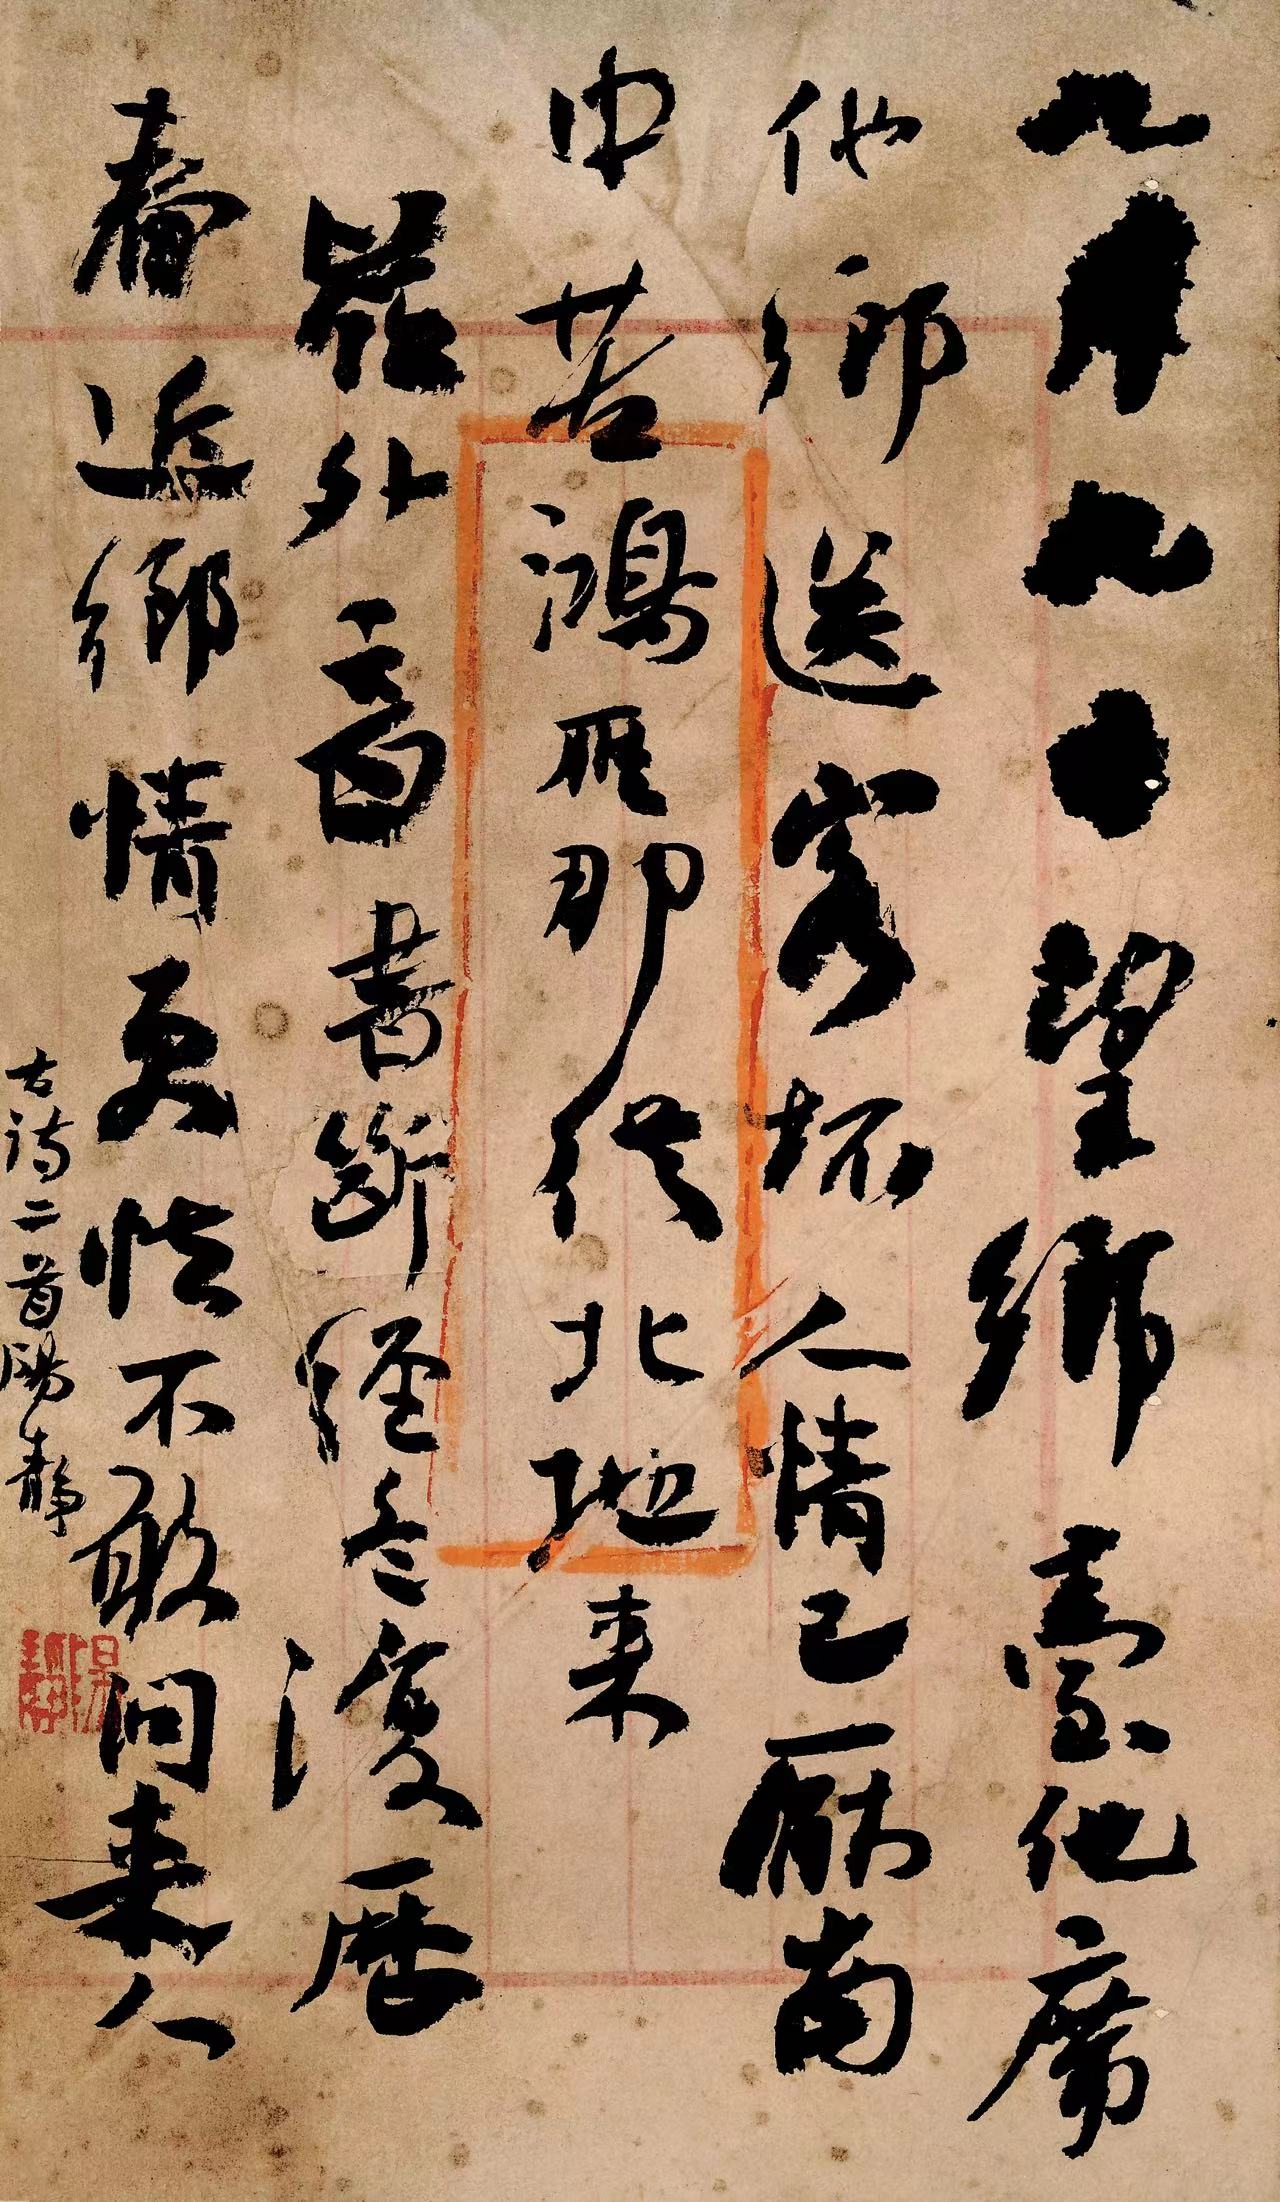 九月九日望鄉臺他席
他鄉送客杯人情已厭南
中苦鴻雁那從北地来
嶺外音書斷經冬復歷
春近鄉情更怯不敢問来人
古詩二首陽靜